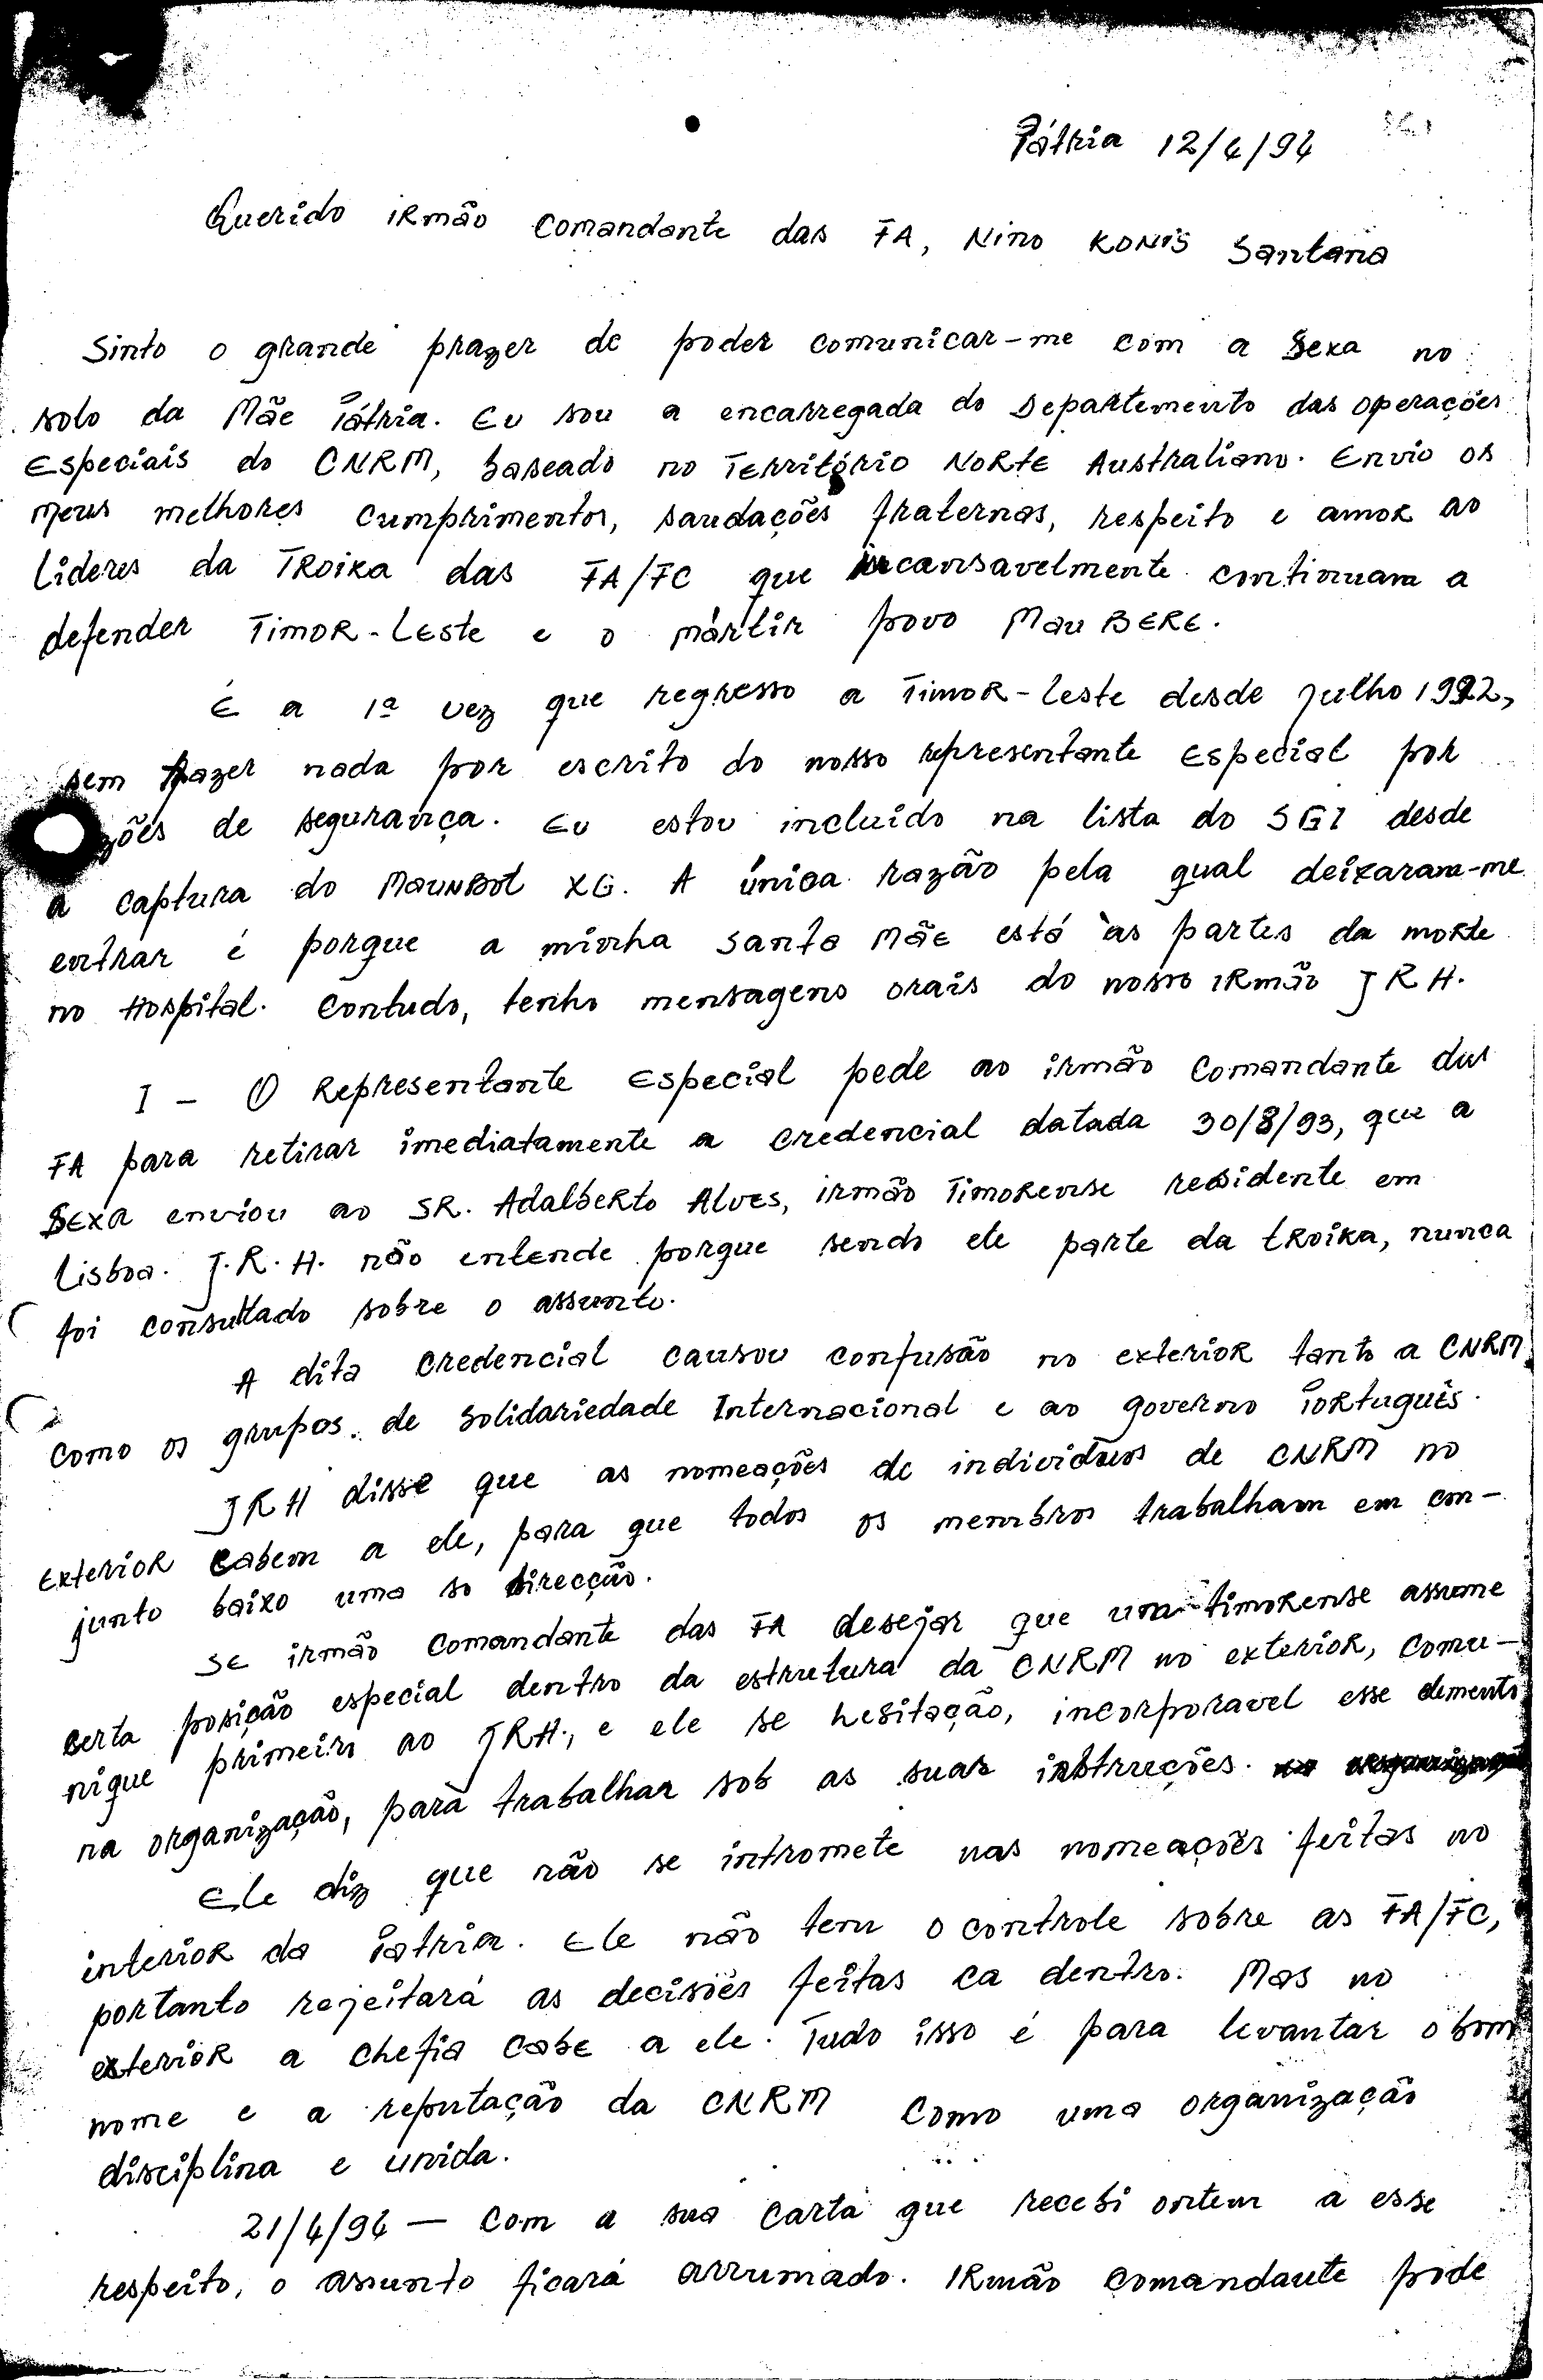 Pátria 12/4/94
Querido irmão Comandante das FA, Nino Konis Santana
Sinto o grande prazer de poder comunicar-me com a Sexa no
solo da Mãe Pátria. Eu sou a encarregada do Departemento das operações
Especiais do CNRM, baseado no Território Norte Australiano. Envio os
meus melhores cumprimentos, saudações fraternas, respeito e amor ao
lideres da Troika das FA/FC que incansavelmente continuam a
defender Timor-Leste e o mártir povo MauBERE.
É a 1ª vez que regresso a Timor-Leste desde julho 1992,
sem trazer nada por escrito do nosso representante Especial por
zões de segurança. Eu estou incluído na lista do SGI desde
a captura do Maunboot XG. A única razão pela qual deixaram-me
entrar é porque a minha Santa Mãe está às partes da morte
no Hospital. Contudo, tenho mensagens orais do nosso irmão JRH.
I - O Representante Especial pede ao irmão Comandante das
FA para retirar imediatamente a credencial datada 30/8/93, que a
Sexa enviou ao SR. Adalberto Alves, irmão Timorense residente em
Lisboa. J.R.H. não entende porque sendo ele parte da troika, nunca
foi consultado sobre o assunto.
A dita credencial causou confusão no exterior tanto a CNRM
como os grupos de solidariedade Internacional e ao governo Português.
JRH disse que as nomeações de individuos de CNRM no
exterior cabem a ele, para que todos os membros trabalham em con-
junto baixo uma so direcção.
Se irmão Comandante das FA desejar que um timorense assume
certa posição especial dentro da estrutura da CNRM no exterior, comu-
nique primeiro ao JRH., e ele se hesitação, incorporavel esse elemento
na organização, para trabalhar sob as suas instruções.
Ele diz que não se intromete nas nomeações feitas no
interior da Pátria. Ele não tem o controle sobre as FA/FC,
portanto rejeitará as decisões feitas ca dentro. Mas no
exterior a chefia cabe a ele. Tudo isso é para levantar o bom
nome e a reputação da CNRM como uma organização
disciplina e unida.
21/4/94 — Com a sua carta que recebi ontem a esse
respeito, o assunto ficará arrumado. Irmão Comandante pode